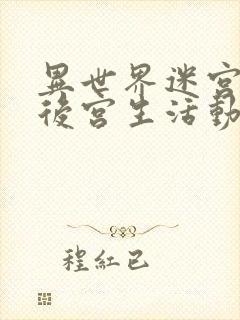 異世界迷宮
後宮生活動
程紅已